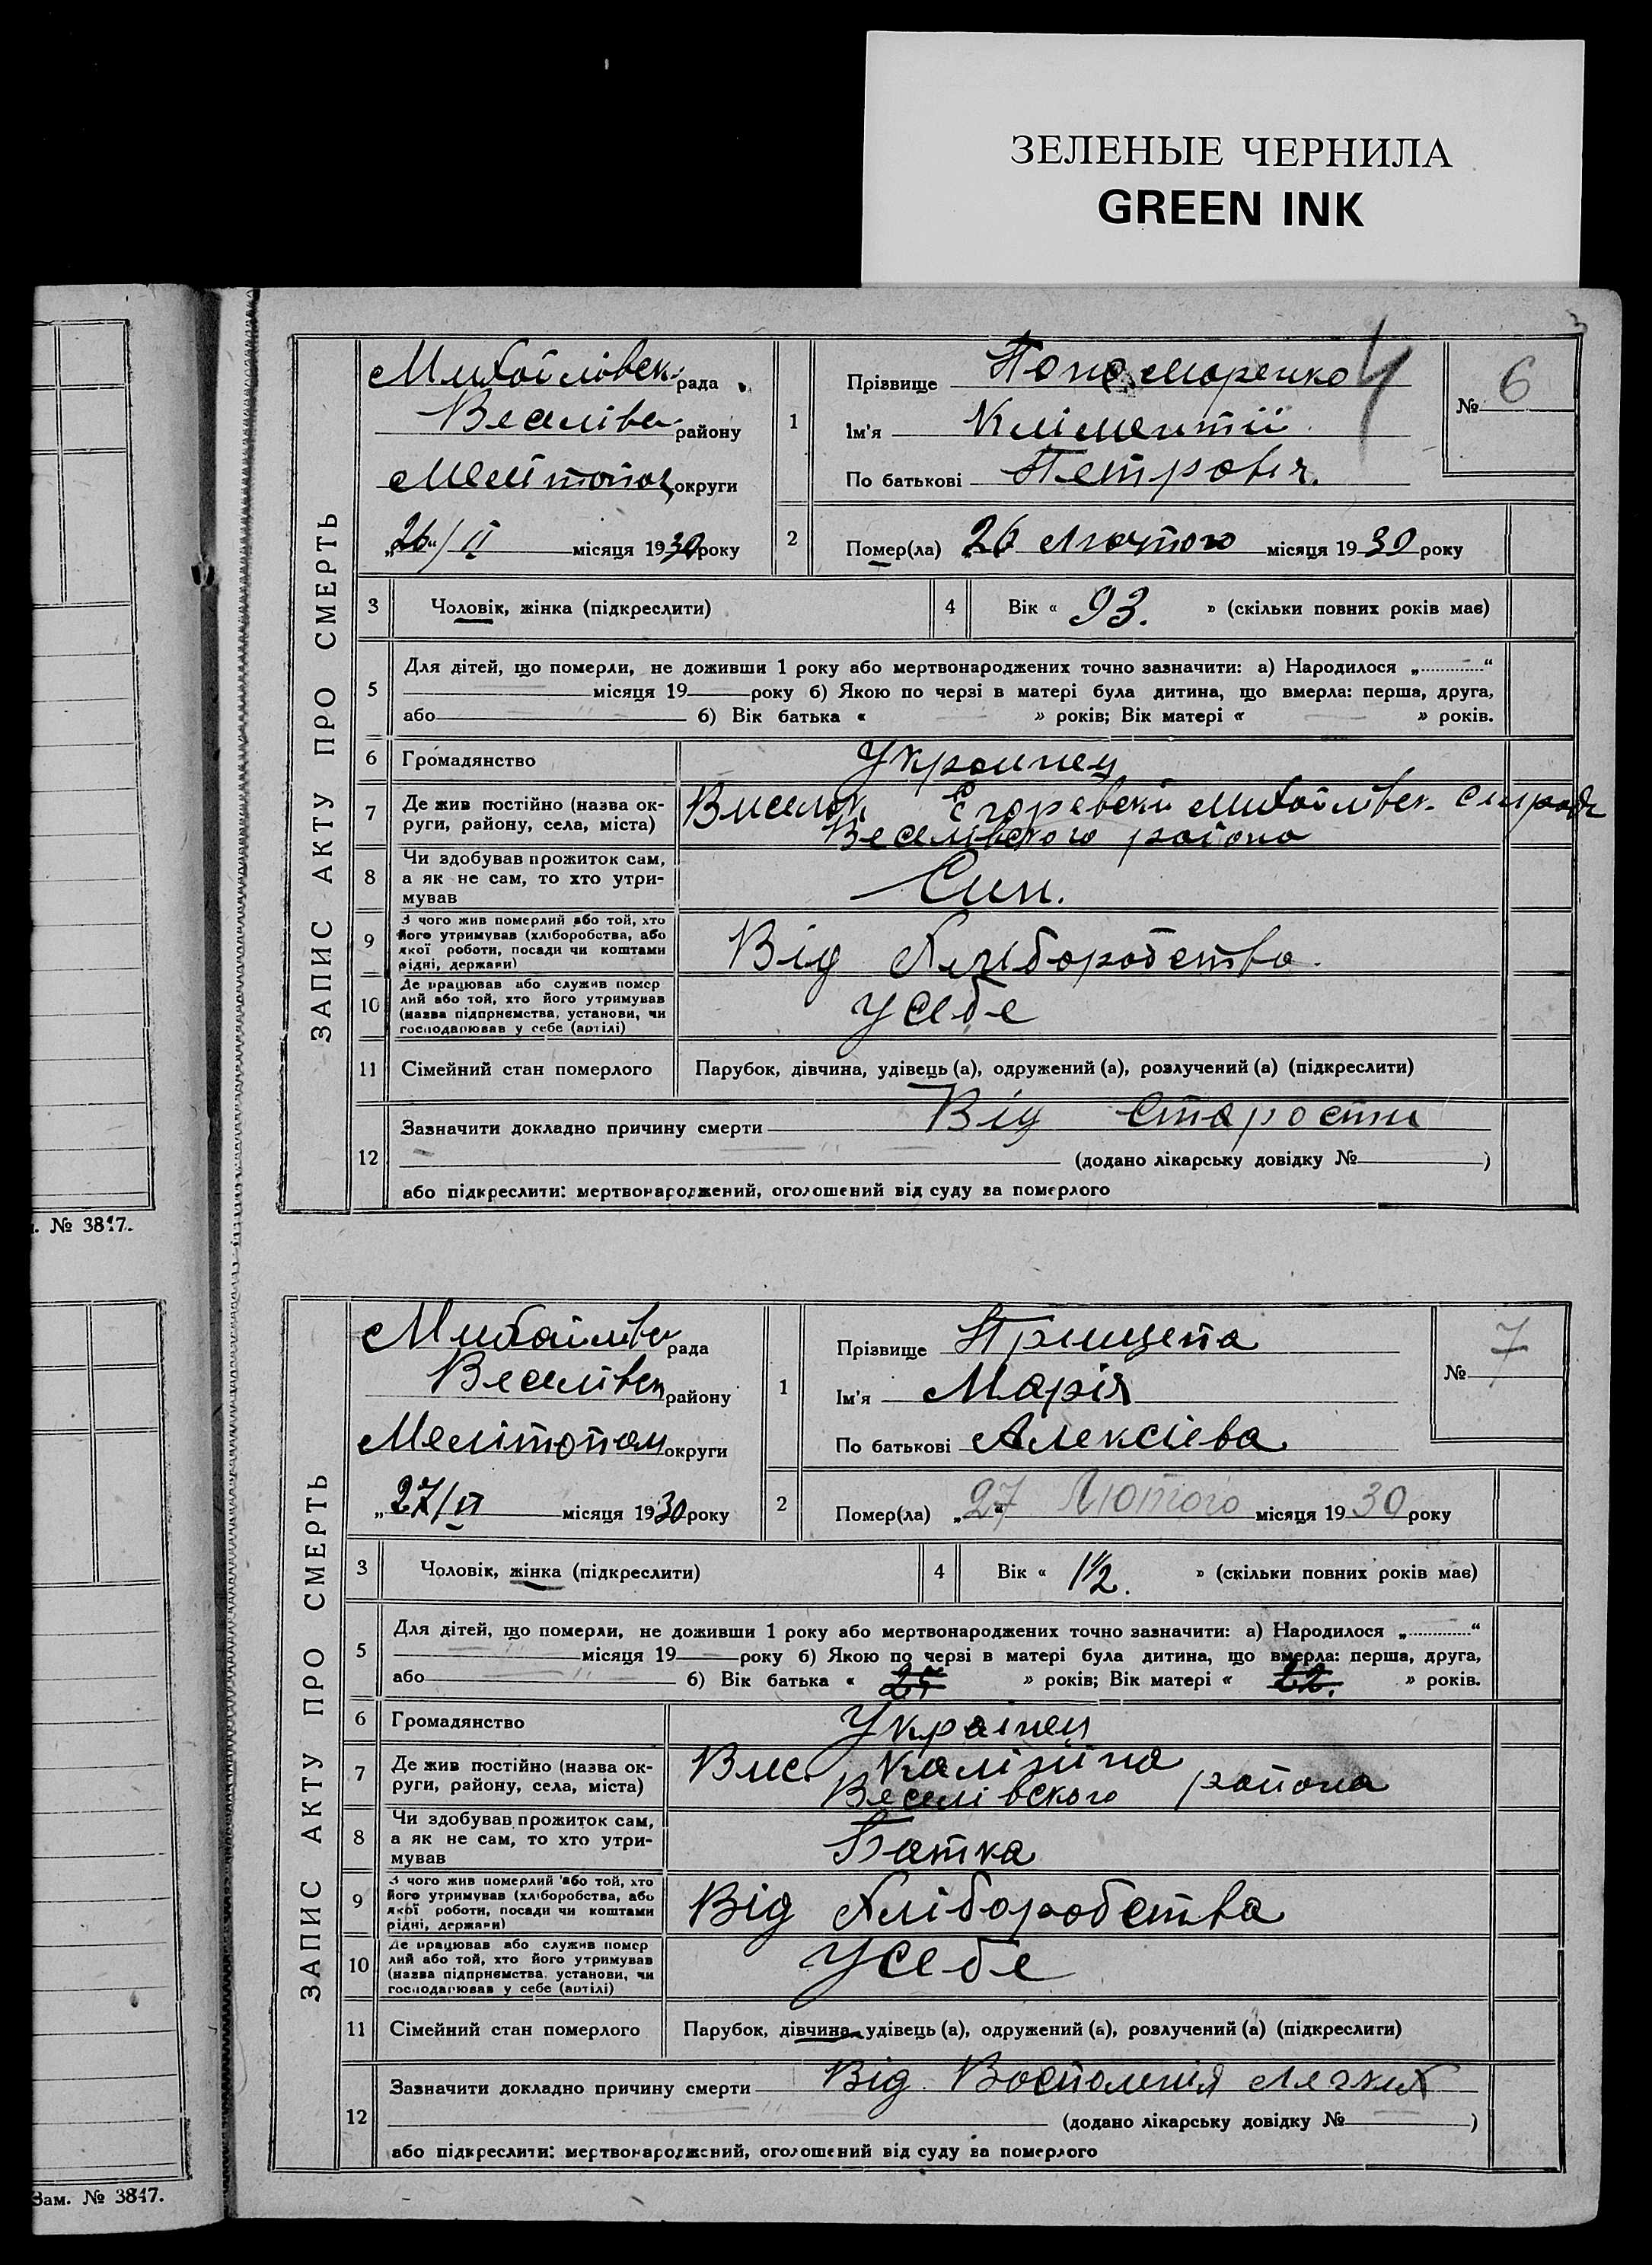 ЗЕЛЕНЫЕ ЧЕРНИЛА
GREEN INK
ЗАПИС АКТУ ПРО СМЕРТЬ
Михайлівськ рада
Веселівск району
Меліtопол округи
„26“/II місяця 1930 року
1
Прізвище Пономаренко
Ім'я Кліментій
По батькові Петровіч.
№ 6
2
Помер(ла) 26 Лютого місяця 1930 року
3 Чоловік, жінка (підкреслити)
4 Вік « 93. » (скільки повних років має)
5
Для дітей, що померли, не доживши 1 року або мертвонароджених точно зазначити: а) Народилося „ “
місяця 19 року б) Якою по черзі в матері була дитина, що вмерла: перша, друга,
або б) Вік батька « » років; Вік матері « » років.
6 Громадянство Украинец
7 Де жив постійно (назва ок-
руги, району, села, міста)
Виселок Егоревский Михайлівск. Сильради
Веселівского району
8 Чи здобував прожиток сам,
а як не сам, то хто утри-
мував
Син.
9 З чого жив померлий або той, хто
його утримував (хліборобства, або
якої роботи, посади чи коштами
рідні, держави)
Від Хліборобства.
10 Де працював або служив помер
лий або той, хто його утримував
(назва підприємства, установи, чи
господарював у себе (артілі)
Усебе
11 Сімейний стан померлого Парубок, дівчина, удівець (а), одружений (а), розлучений (а) (підкреслити)
12
Зазначити докладно причину смерти Від Старости
(додано лікарську довідку № )
або підкреслити: мертвонароджений, оголошений від суду за померлого
. № 3817.
ЗАПИС АКТУ ПРО СМЕРТЬ
Михайлівск рада
Веселівск району
Мелітопол округи
„27/II місяця 1930 року
1
Прізвище Прищепа
Ім'я Марія
По батькові Алексієва
№ 7
2
Помер(ла) „27“ Лютого місяця 1930 року
3 Чоловік, жінка (підкреслити)
4 Вік « 1½. » (скільки повних років має)
5
Для дітей, що померли, не доживши 1 року або мертвонароджених точно зазначити: а) Народилося „ “
місяця 19 року б) Якою по черзі в матері була дитина, що вмерла: перша, друга,
або б) Вік батька « 25 » років; Вік матері « 22. » років.
6 Громадянство Українец
7 Де жив постійно (назва ок-
руги, району, села, міста)
Вис. Калініна
Веселівского района
8 Чи здобував прожиток сам,
а як не сам, то хто утри-
мував
Батка
9 З чого жив померлий або той, хто
його утримував (хліборобства, або
якої роботи, посади чи коштами
рідні, держави)
Від Хліборобства
10 Де працював або служив помер
лий або той, хто його утримував
(назва підприємства, установи, чи
господарював у себе (артілі)
Усебе
11 Сімейний стан померлого Парубок, дівчина, удівець (а), одружений (а), розлучений (а) (підкреслити)
12
Зазначити докладно причину смерти Від Восполенія Легких
(додано лікарську довідку № )
або підкреслити: мертвонароджений, оголошений від суду за померлого
Зам. № 3817.